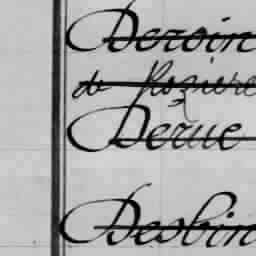 Deroin
de Roziere
Derue
Desbin